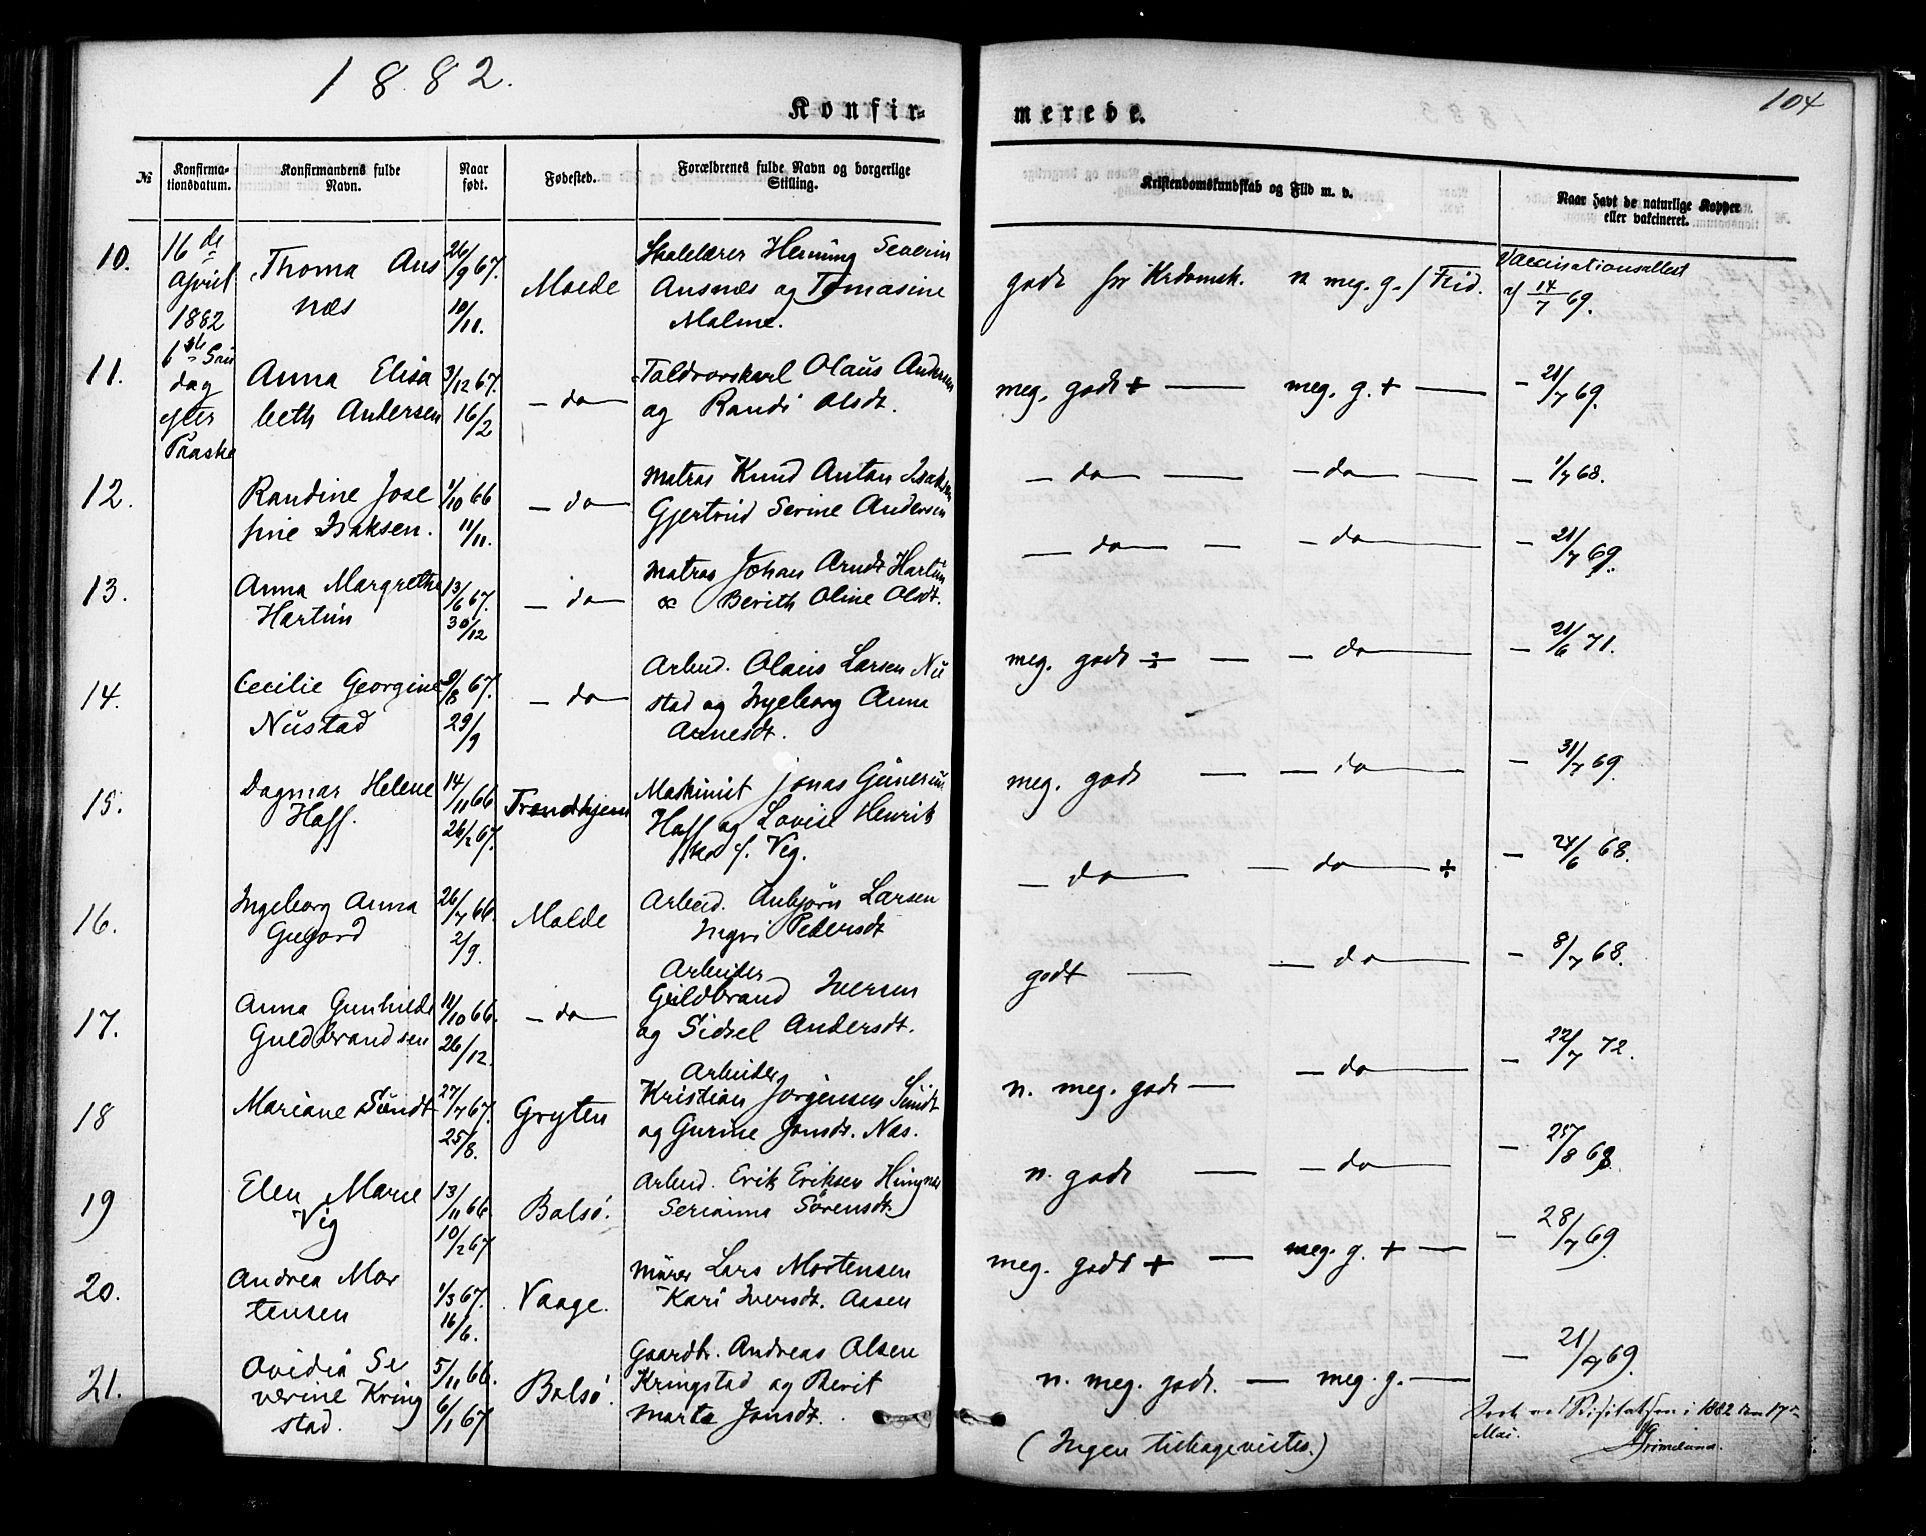 1882.
104
Konfir-
merede.
№
Konfirma-
tionsdatum.
Konfirmandens fulde
Navn.
Naar
født.
Fødested.
Forældrenes fulde Navn og borgerlige
Stilling.
Kristendomskundskab og Flid m. v.
Naar havt de naturlige Kopper
eller vakcineret.
10.
16de
April
1882
Thoma Aus
næs
26/9 67.
10/11.
Molde
Skolelærer Henning Severin
Ausnæs og Tomasine
Malme.
godt for Krdomsk.
n. meg. g. f Flid.
Vaccinationsattest
af 14/7 69.
11.
dag
efter
Paaske
Anna Elisa
beth Andersen
3/12 67.
16/2
— do —
Toldrorskarl Olaus Andersen
og Randi Olsdt.
meg. godt + —
meg. g. + —
— 21/7 69.
12.
Randine Jose
fine Isaksen.
1/10 66
11/11.
— do —
Matros Knud Anton Isaksen
Gjertrud Serine Andersen
— do — —
— do — —
— 1/7 68.
13.
Anna Margrethe
Hartun
13/6 67.
30/12
— do —
Matros Johan Arndt Hartun
& Berith Oline Olsdt.
— do — —
— do —
— 21/7 69.
14.
Cecilie Georgine
Nustad
2/8 67.
29/9
— do —
Arbeid. Olaus Larsen Nu
stad og Ingeborg Anna
Arnesdt.
meg. godt ÷ —
— do —
— 21/6 71.
15.
Dagmar Helene
Hoff.
14/11 66
26/2 67.
Trondhjem
Maskinist Jonas
Hoff og Lovise Henrik
f. Veg.
meg. godt —
— do —
— 31/7 69.
16.
Ingeborg Anna
26/7 66.
2/9.
Molde
Arbeid. Anbjørn Larsen
Ingri Pedersdt
— do —
— do — ÷
— 24/6 68.
17.
Anna Gunhilde
Guldbrandsen
11/10 66.
26/12.
— do —
Arbeider
Guldbrand Iversen
og Sidsel Andersdt.
godt —
— do —
— 8/7 68.
18
Mariane Sundt
27/7 67.
25/8.
Gryten
Arbeider
Kristian Jørgensen Sundt
og Gurine Jonsdt. Næs.
n. meg. godt —
— do —
— 22/7 72.
19
Elen Marie
Vig
13/11 66.
10/2 67
Bolsø.
Arbeid. Erik Eriksen
Serianna Sørensdt.
n. godt —
— do —
— 25/8 68.
20.
Andrea Mor
tensen
1/3 67.
16/6.
Vaage.
Murer Lars Mortensen
Kari Iversdt. Aasen
meg. godt + —
meg. g. + —
— 28/7 69.
21.
Ovidia Se
verine Kring
stad.
5/11 66.
6/1 67
Bolsø.
Gaardbr. Andreas Olsen
Kringstad og Berit
Marta Jonsdt.
n. meg. godt. —
meg. g. —
— 21/7 69.
(Ingen tilbagevistes.)
ved Visitatsen i 1882 den 17de
Mai.
Grimelund.